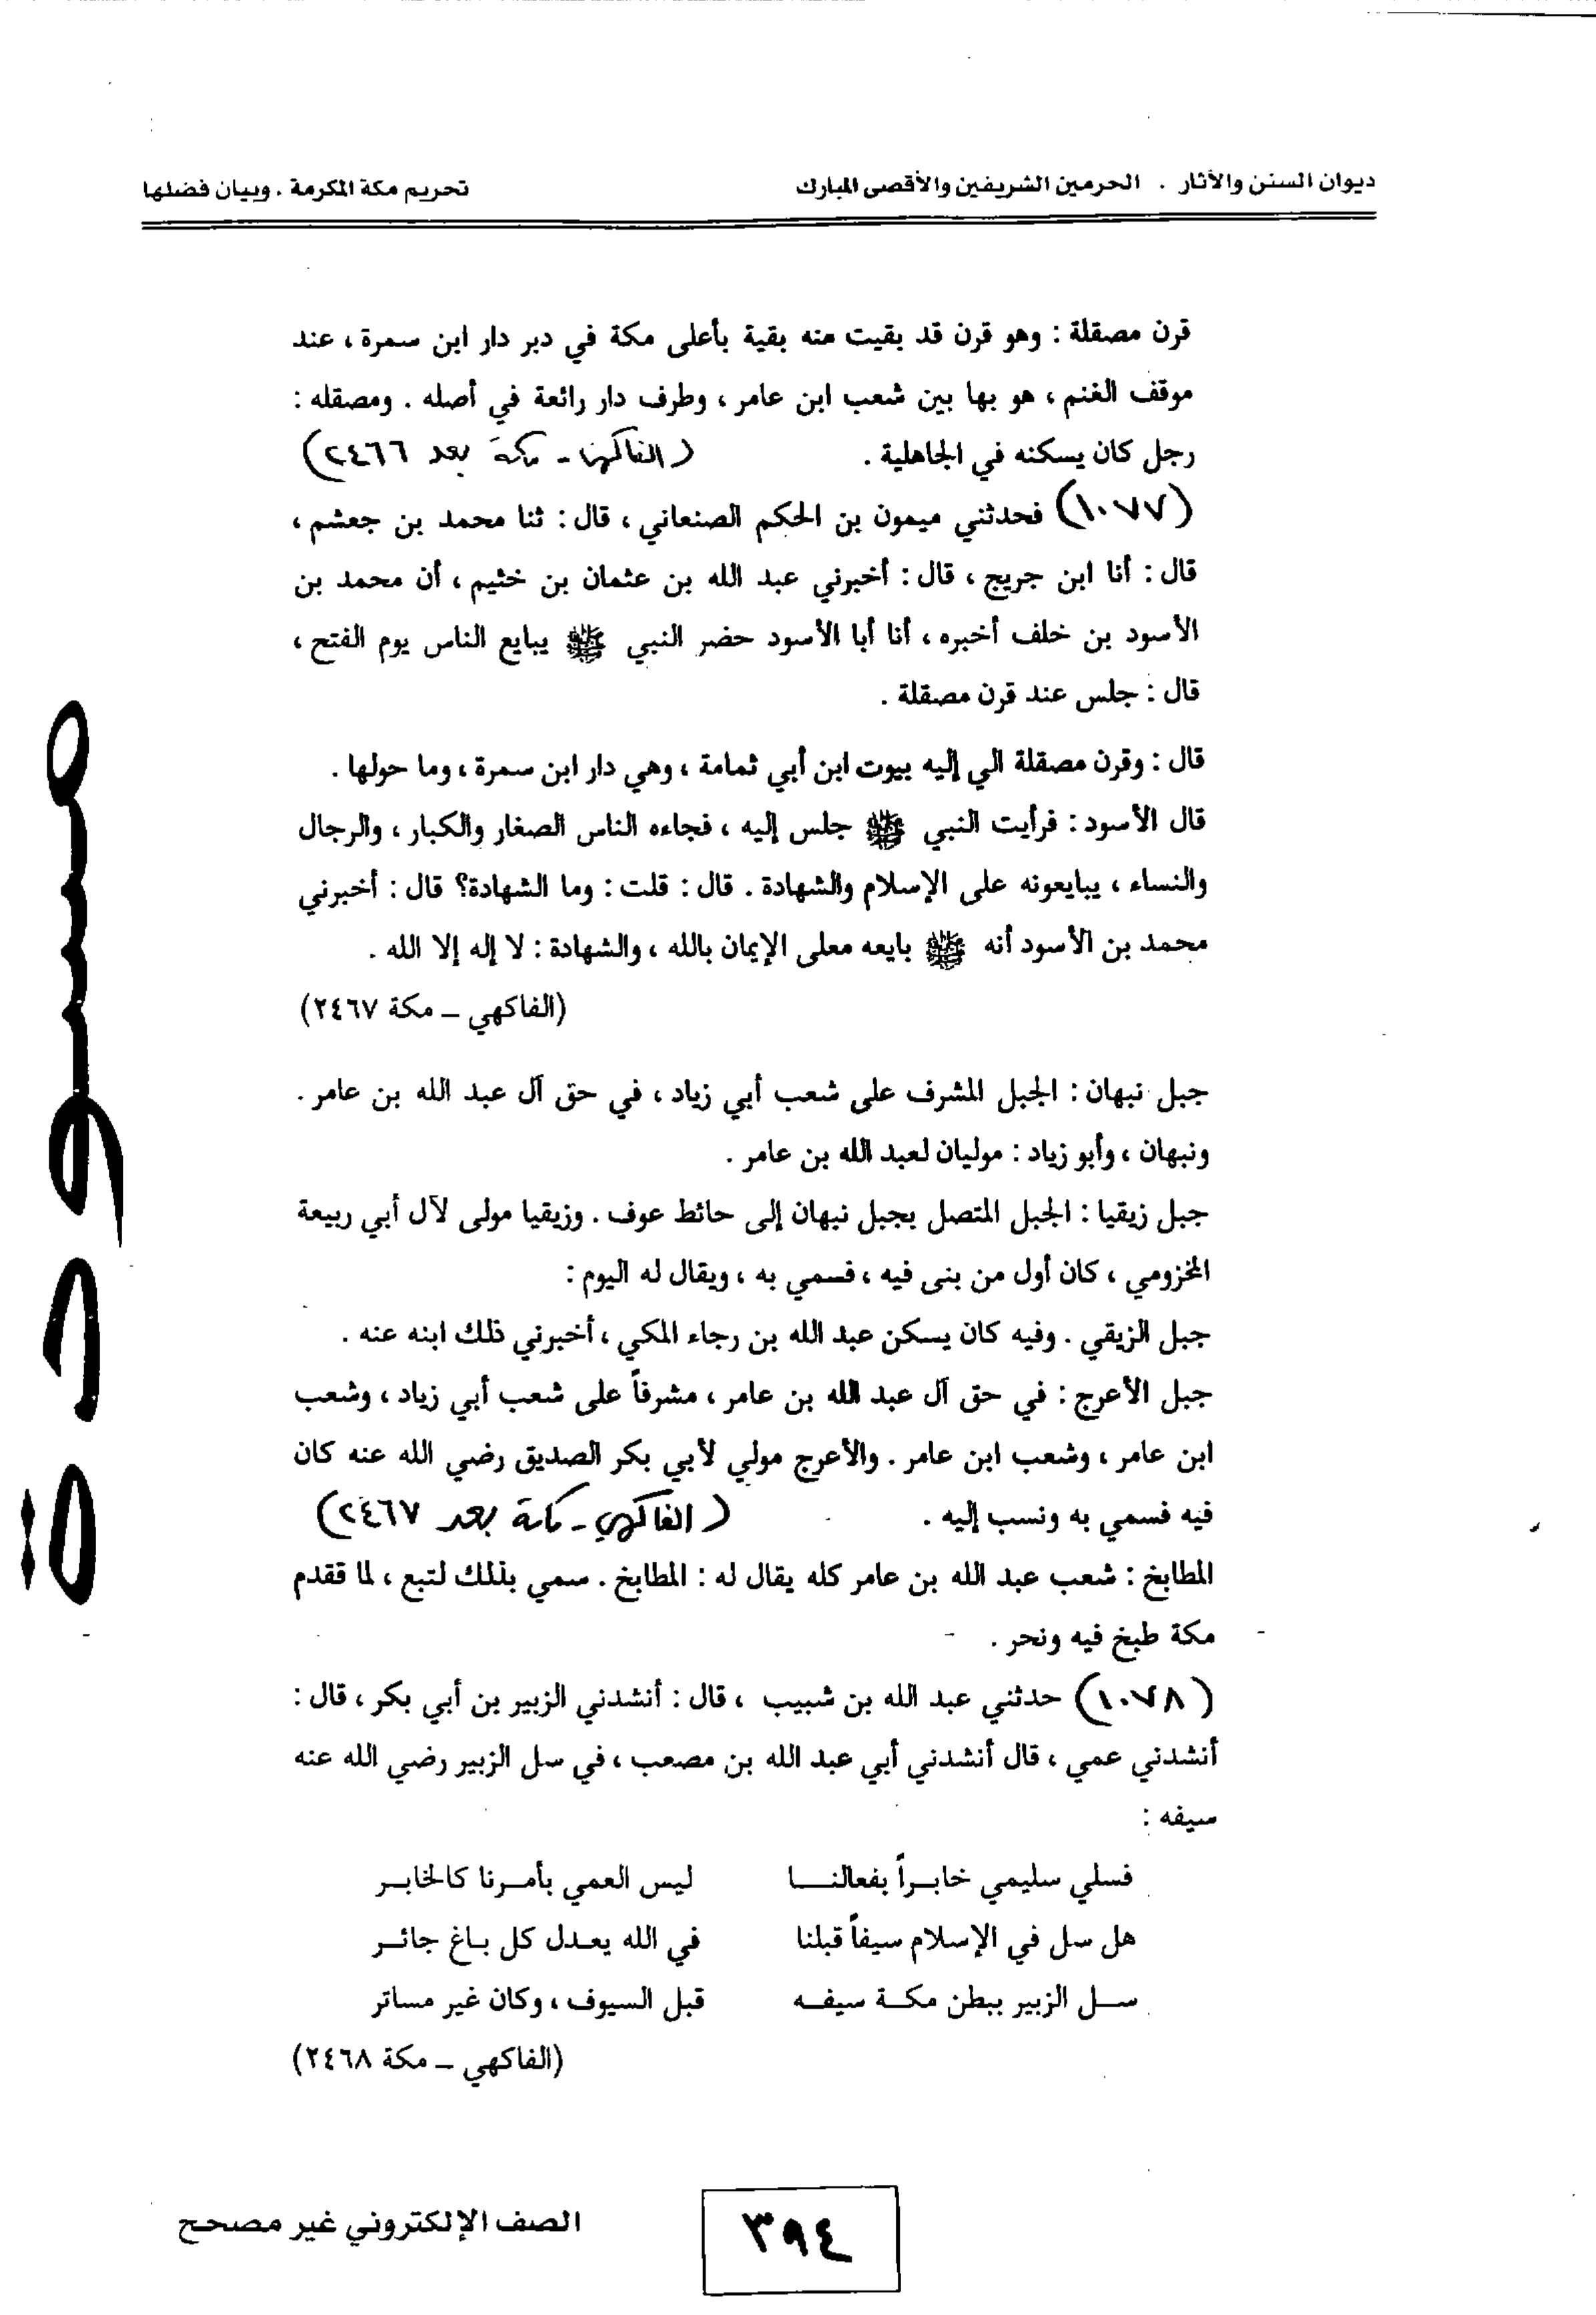 ديوان السنن والآثار . الحرمين الشريفين والأقصى المبارك
تحريم مكة المكرمة . وبيان فضلها
قرن مصقلة : وهو قرن قد بقيت منه بقية بأعلى مكة في دبر دار ابن سمرة ، عند
موقف الغنم ، هو بها بين شعب ابن عامر ، وطرف دار رائعة في أصله . ومصقله :
رجل كان يسكنه في الجاهلية . (الفاكهي - مكة بعد ٢٤٦٦)
(١٠٧٧) فحدثني ميمون بن الحكم الصنعاني ، قال : ثنا محمد بن جعشم ،
قال : أنا ابن جريج ، قال : أخبرني عبد الله بن عثمان بن خثيم ، أن محمد بن
الأسود بن خلف أخبره ، أنا أبا الأسود حضر النبي ﷺ يبايع الناس يوم الفتح ،
قال : جلس عند قرن مصقلة .
قال : وقرن مصقلة الي إليه بيوت ابن أبي ثمامة ، وهي دار ابن سمرة ، وما حولها .
قال الأسود : فرأيت النبي ﷺ جلس إليه ، فجاءه الناس الصغار والكبار ، والرجال
والنساء ، يبايعونه على الإسلام والشهادة . قال : قلت : وما الشهادة؟ قال : أخبرني
محمد بن الأسود أنه ﷺ بايعه معلى الإيمان بالله ، والشهادة : لا إله إلا الله .
(الفاكهي – مكة ٢٤٦٧)
جبل نبهان : الجبل المشرف على شعب أبي زياد ، في حق آل عبد الله بن عامر .
ونبهان ، وأبو زياد : موليان لعبد الله بن عامر .
جبل زيقيا : الجبل المتصل بجبل نبهان إلى حائط عوف . وزيقيا مولى لآل أبي ربيعة
المخزومي ، كان أول من بنى فيه ، فسمي به ، ويقال له اليوم :
جبل الزيقي . وفيه كان يسكن عبد الله بن رجاء المكي ، أخبرني ذلك ابنه عنه .
جبل الأعرج : في حق آل عبد الله بن عامر ، مشرفاً على شعب أبي زياد ، وشعب
ابن عامر ، وشعب ابن عامر . والأعرج مولي لأبي بكر الصديق رضي الله عنه كان
فيه فسمي به ونسب إليه . (الفاكهي - مكة بعد ٢٤٦٧)
المطابخ : شعب عبد الله بن عامر كله يقال له : المطابخ . سمي بذلك لتبع ، لما ققدم
مكة طبخ فيه ونحر .
(١٠٧٨) حدثني عبد الله بن شبيب ، قال : أنشدني الزبير بن أبي بكر ، قال :
أنشدني عمي ، قال أنشدني أبي عبد الله بن مصعب ، في سل الزبير رضي الله عنه
سيفه :
فسلي سليمي خابـراً بفعالنـــا ليس العمي بأمـرنا كالخابـر
هل سل في الإسلام سيفاً قبلنا في الله يعـدل كل بـاغ جائـر
ســل الزبير ببطن مكــة سيفــه قبل السيوف ، وكان غير مساتر
(الفاكهي – مكة ٢٤٦٨)
٣٩٤
الصف الإلكتروني غير مصحح
مسودة